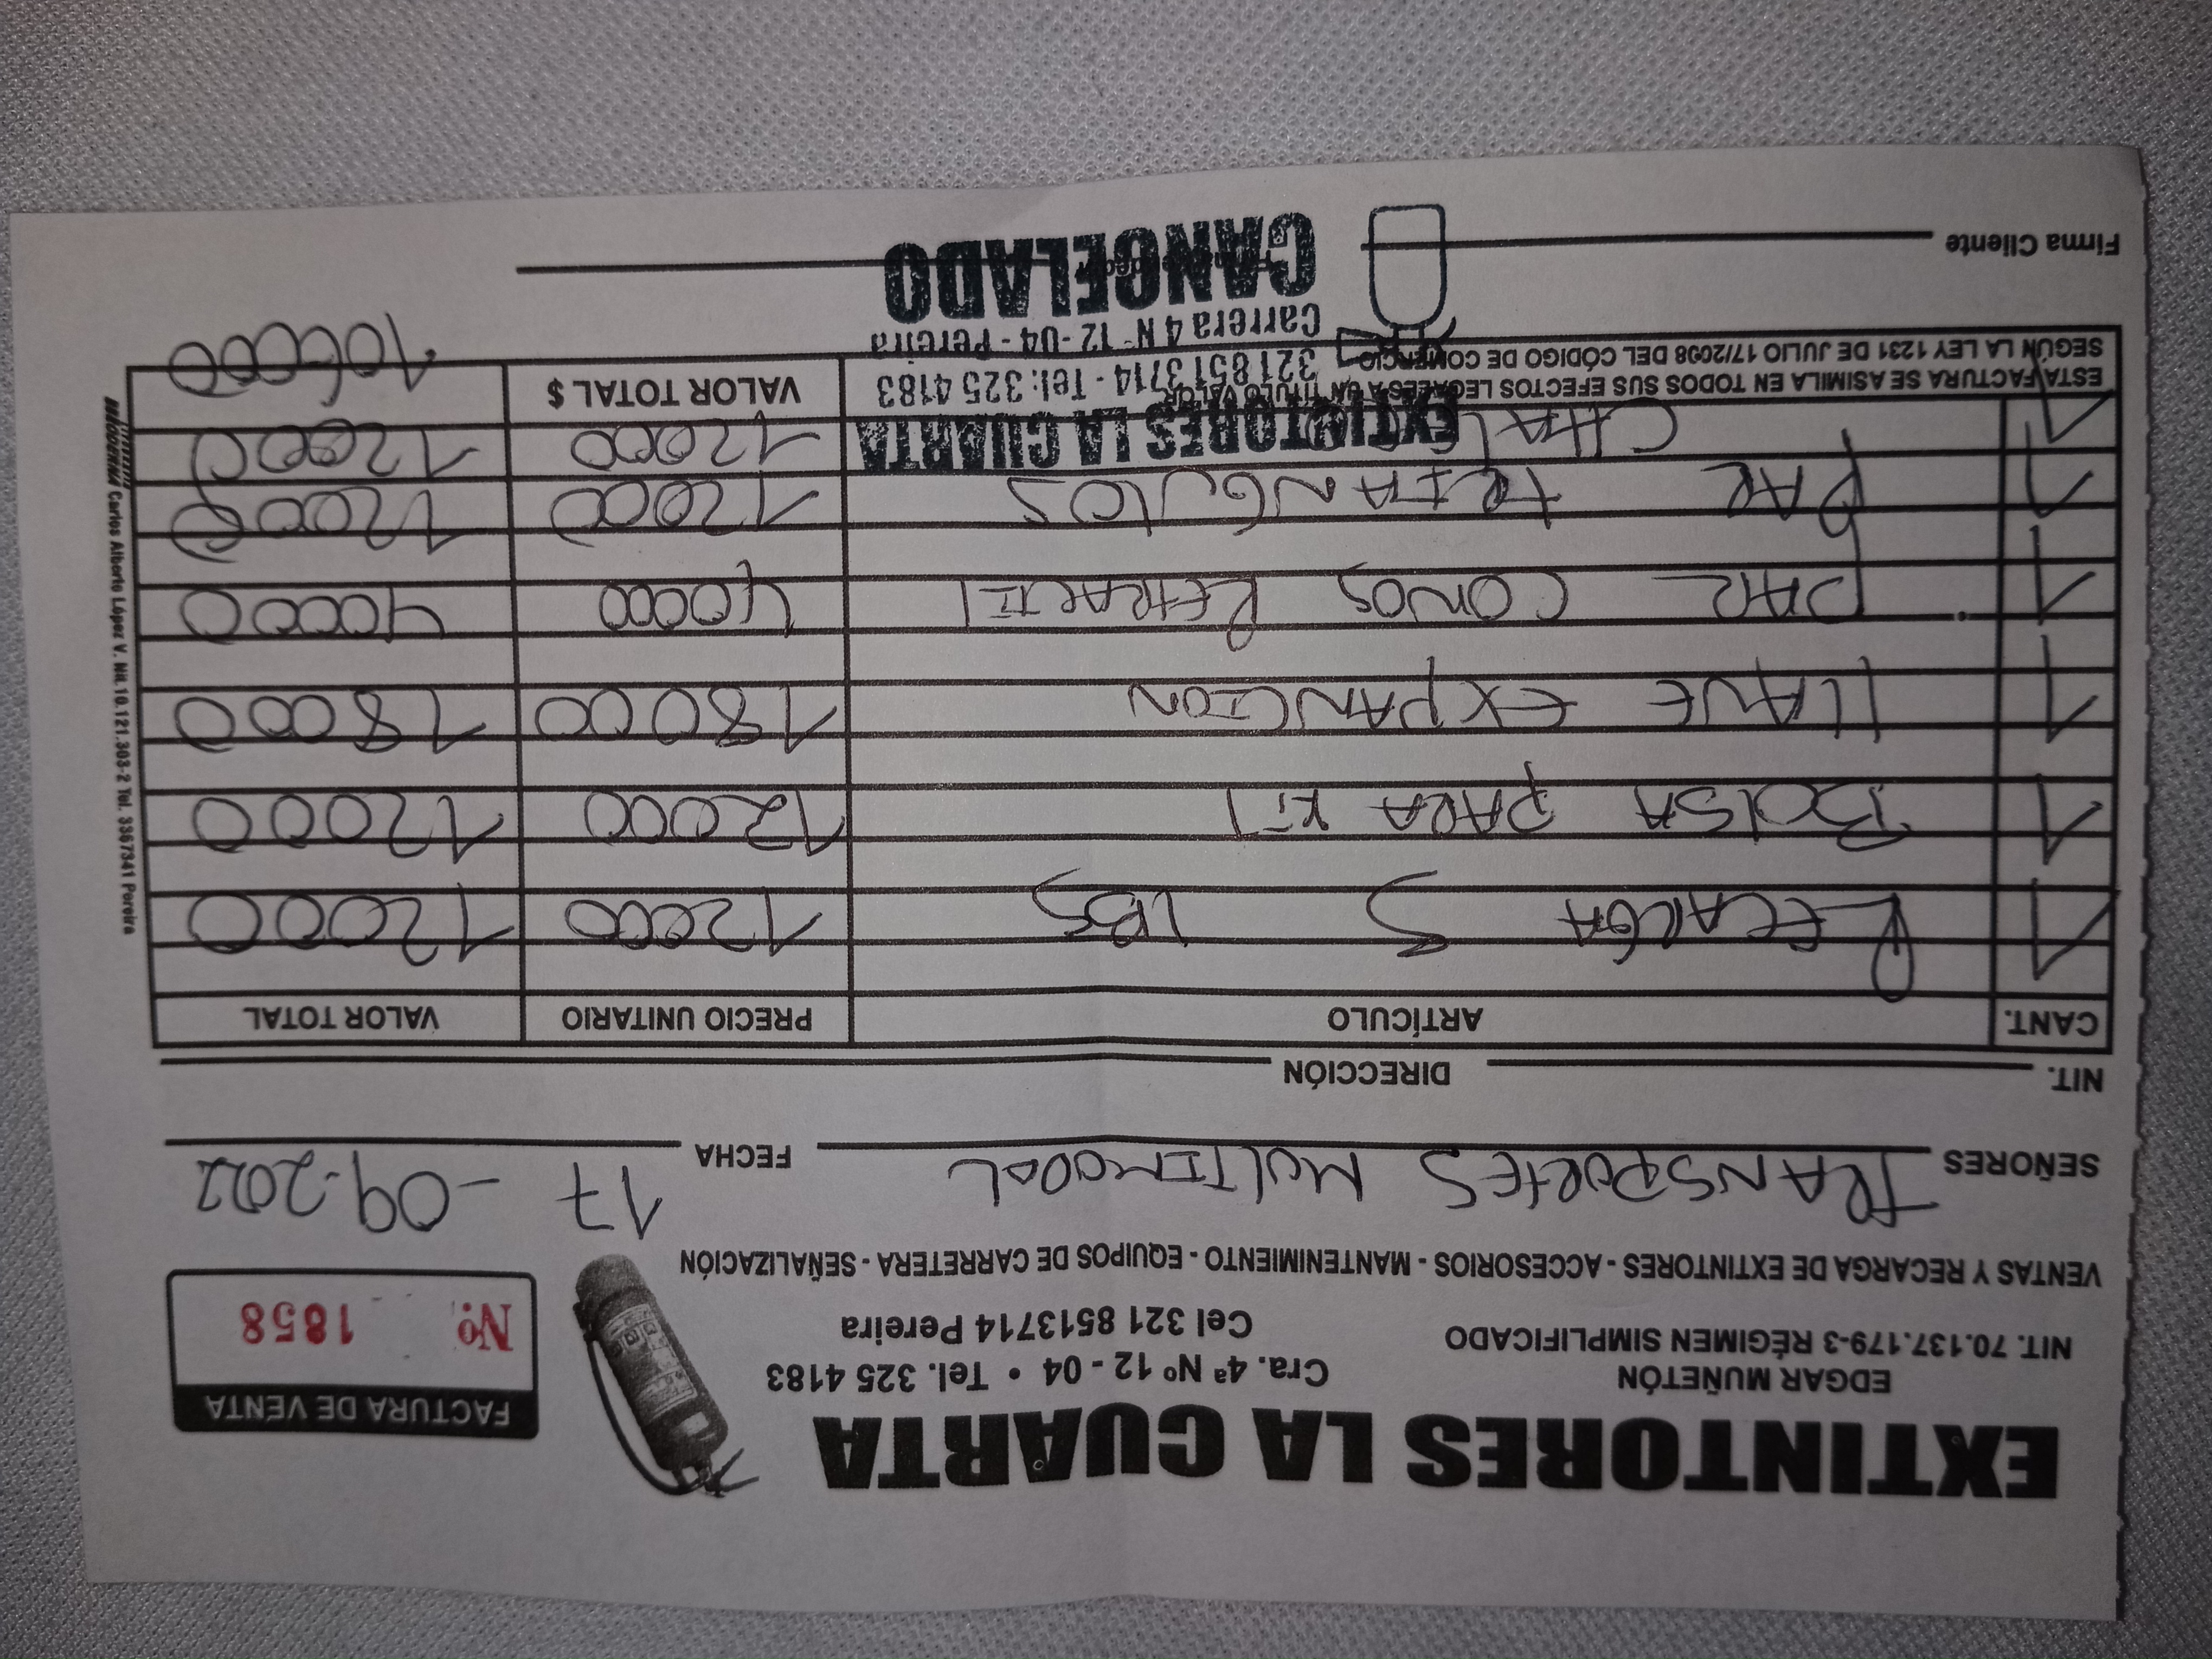 EXTINTORES LA CUARTA
EDGAR MUÑETÓN
NIT. 70.137.179-3 RÉGIMEN SIMPLIFICADO
Cra. 4ª Nº 12 - 04 • Tel. 325 4183
Cel 321 8513714 Pereira
FACTURA DE VENTA
Nº 1858
VENTAS Y RECARGA DE EXTINTORES - ACCESORIOS - MANTENIMIENTO - EQUIPOS DE CARRETERA - SEÑALIZACIÓN
SEÑORES TRANSPORTES MULTIMODAL FECHA 17 -09-2022
NIT. DIRECCIÓN
CANT. ARTÍCULO PRECIO UNITARIO VALOR TOTAL
1 RECARGA 5 LBS 12000 12000
1 BOLSA PARA KIT 12000 12000
1 LLAVE EXPANCION 18000 18000
1 PAR CONOS RETRACTIL 40000 40000
1 PAR TRIANGULOS 12000 12000
1 12000 12000
ESTA FACTURA SE ASIMILA EN TODOS SUS EFECTOS LEGALES A UN TÍTULO VALOR
SEGÚN LA LEY 1231 DE JULIO 17/2008 DEL CÓDIGO DE COMERCIO
VALOR TOTAL $ 106000
EXTINTORES LA CUARTA
321 851 3714 - Tel: 325 4183
Carrera 4 Nº 12 - 04 - Pereira
CANCELADO
Firma Cliente
Carlos Alberto López V. Nit. 10.121.303-2 Tel. 3367341 Pereira